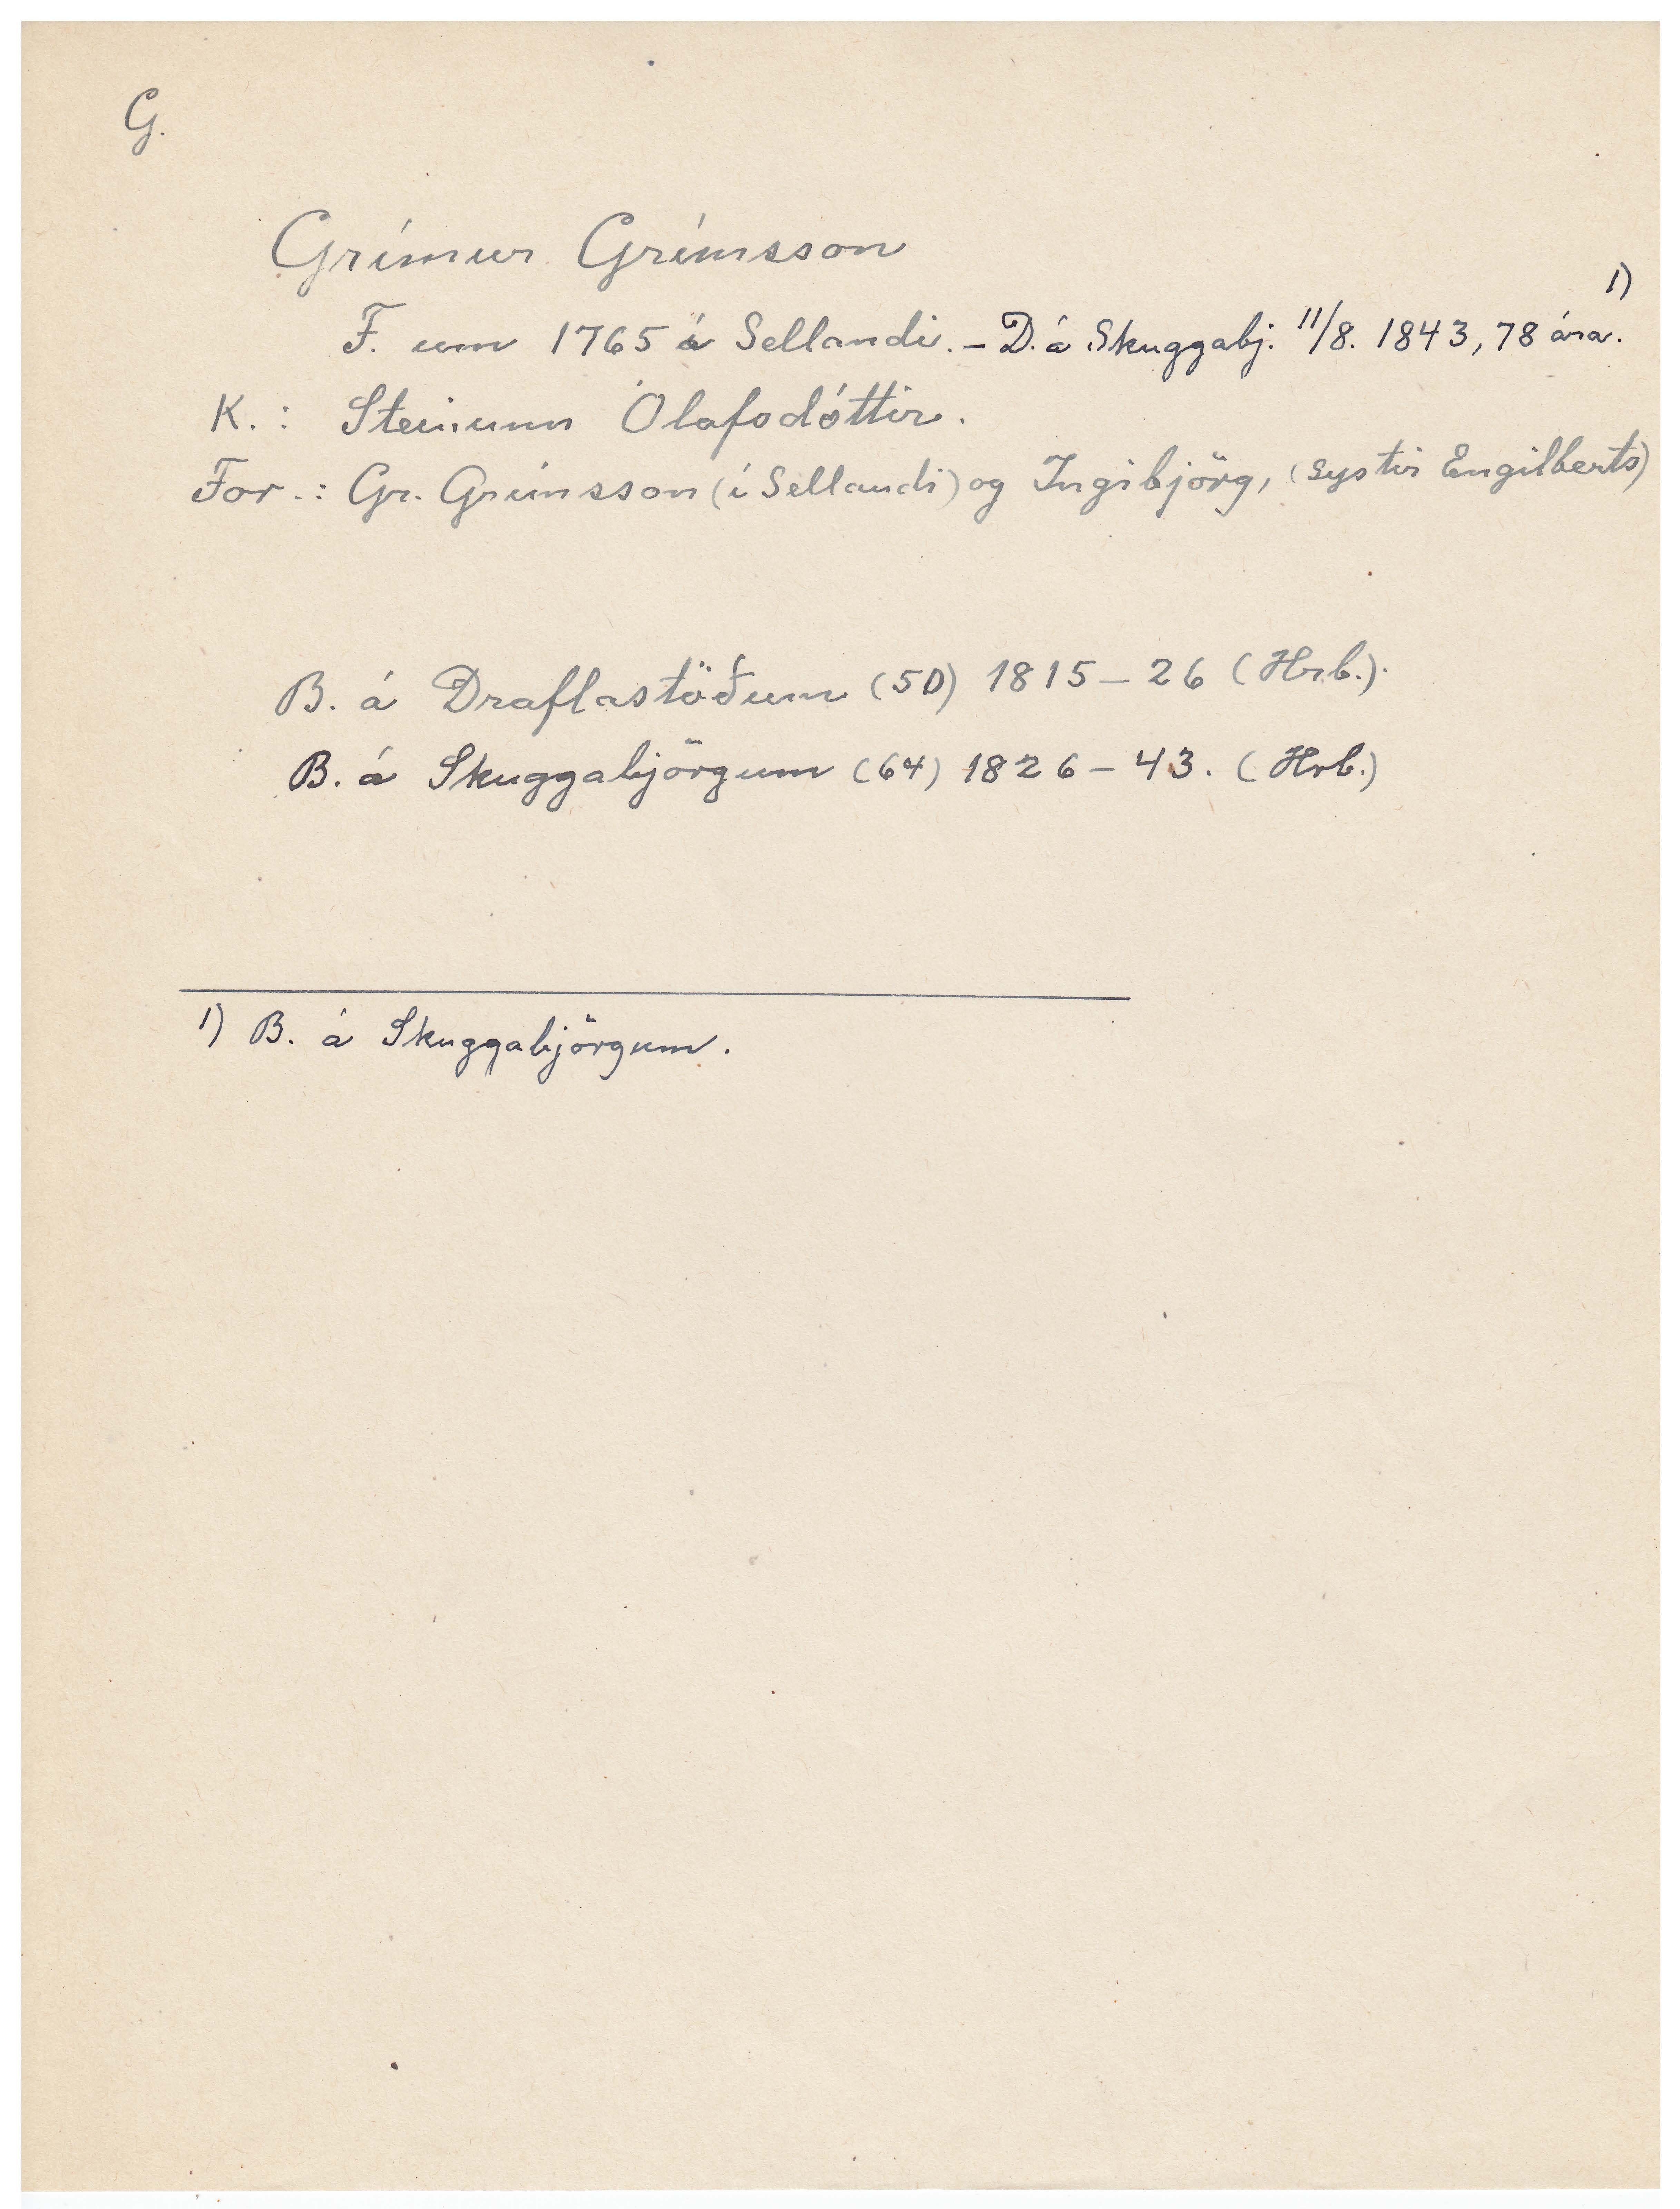 G.
Grímur Grímsson
1)
F. um 1765 á Sellandi. – D. á Skuggabj. 11/8. 1843, 78 ára.
K.: Steinunn Ólafsdóttir.
For.: Gr. Grímsson (í Sellandi) og Ingibjörg, (systir Engilberts)
B. á Draflastöðum (50) 1815 – 26 (Hrb.).
B. á Skuggabjörgum (64) 1826 – 43. (Hrb.)
1) B. á Skuggabjörgum.